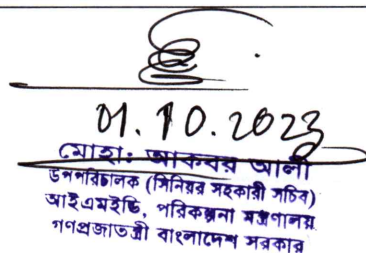 01.10.2023
মোহা: আকবর আলী
উপপরিচালক (সিনিয়র সহকারী সচিব)
আইএমইডি, পরিকল্পনা মন্ত্রণালয়
গণপ্রজাতন্ত্রী বাংলাদেশ সরকার